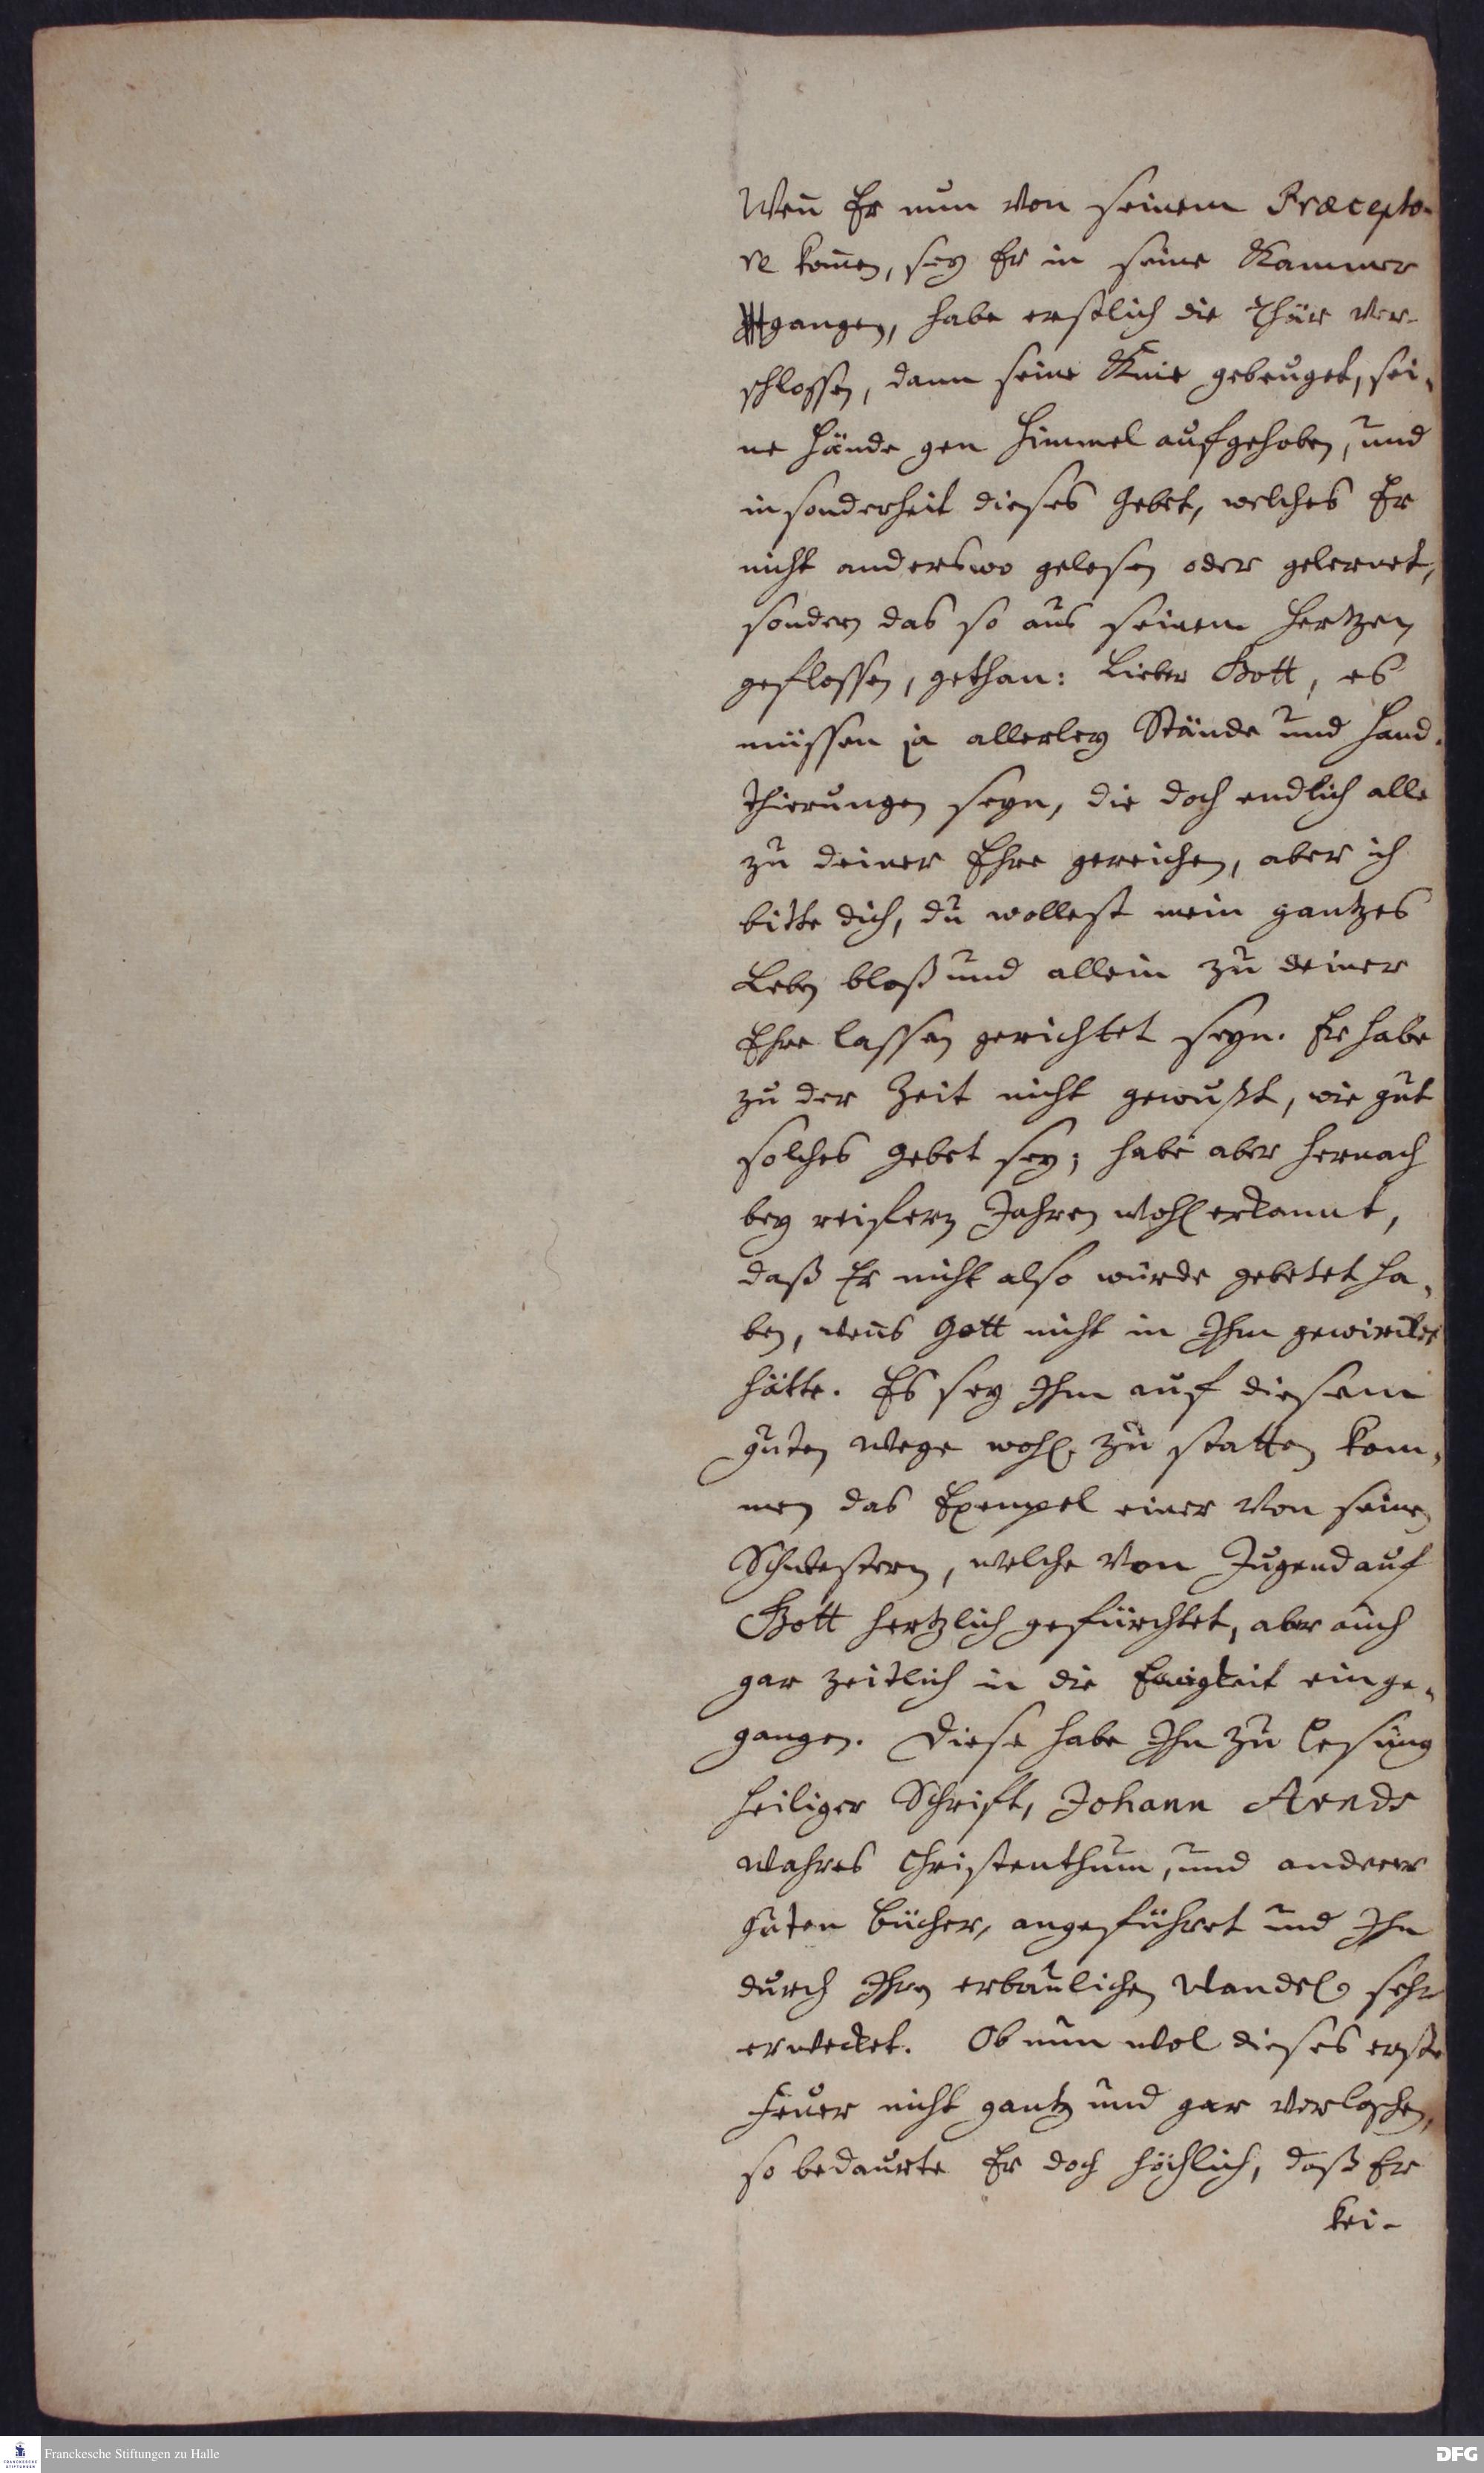 Wen̄ Er nun von seinem Præcepto-
re kom̄en, sey Er in seine Kammer
gangen, habe erstlich die Thür ver-
schlossen, dann seine Knie gebeuget, sei-
ne Hände gen Himmel aufgehoben, und
insonderheit dieses Gebet, welches Er
nicht anderswo gelesen oder gelernet,
sondern das so aus seinem Hertzen
geflossen, gethan: Lieber Gott, es
müssen ja allerley Stände und Hand-
thierungen seyn, die doch endlich alle
zu deiner Ehre gereichen, aber ich
bitte dich, du wollest mein gantzes
Leben bloß und allein zu deiner
Ehre lassen gerichtet seyn. Er habe
zu der Zeit nicht gewußt, wie gut
solches Gebet sey; habe aber hernach
bey reifern Jahren wohl erkannt,
daß Er nicht also würde gebetet ha-
ben, wen̄s Gott nicht in Ihm gewircket
hätte. Es sey Ihm auf diesem
guten Wege wohl zu statten kom-
men das Exempel einer von seinen
Schwestern, welche von Jugend auf
Gott hertzlich gefürchtet, aber auch
gar zeitlich in die Ewigkeit einge-
gangen. Diese habe Ihn zu Lesung
heiliger Schrift, Johann Arnds
wahres Christenthum, und anderer
guten Bücher, angeführet und Ihn
durch Ihren erbaulichen Wandel sehr
erwecket. Ob nun wol dieses erste
Feuer nicht gantz und gar verloschen,
so bedaurte Er doch höchlich, daß Er
kei-
Franckesche Stiftungen zu Halle
DFG